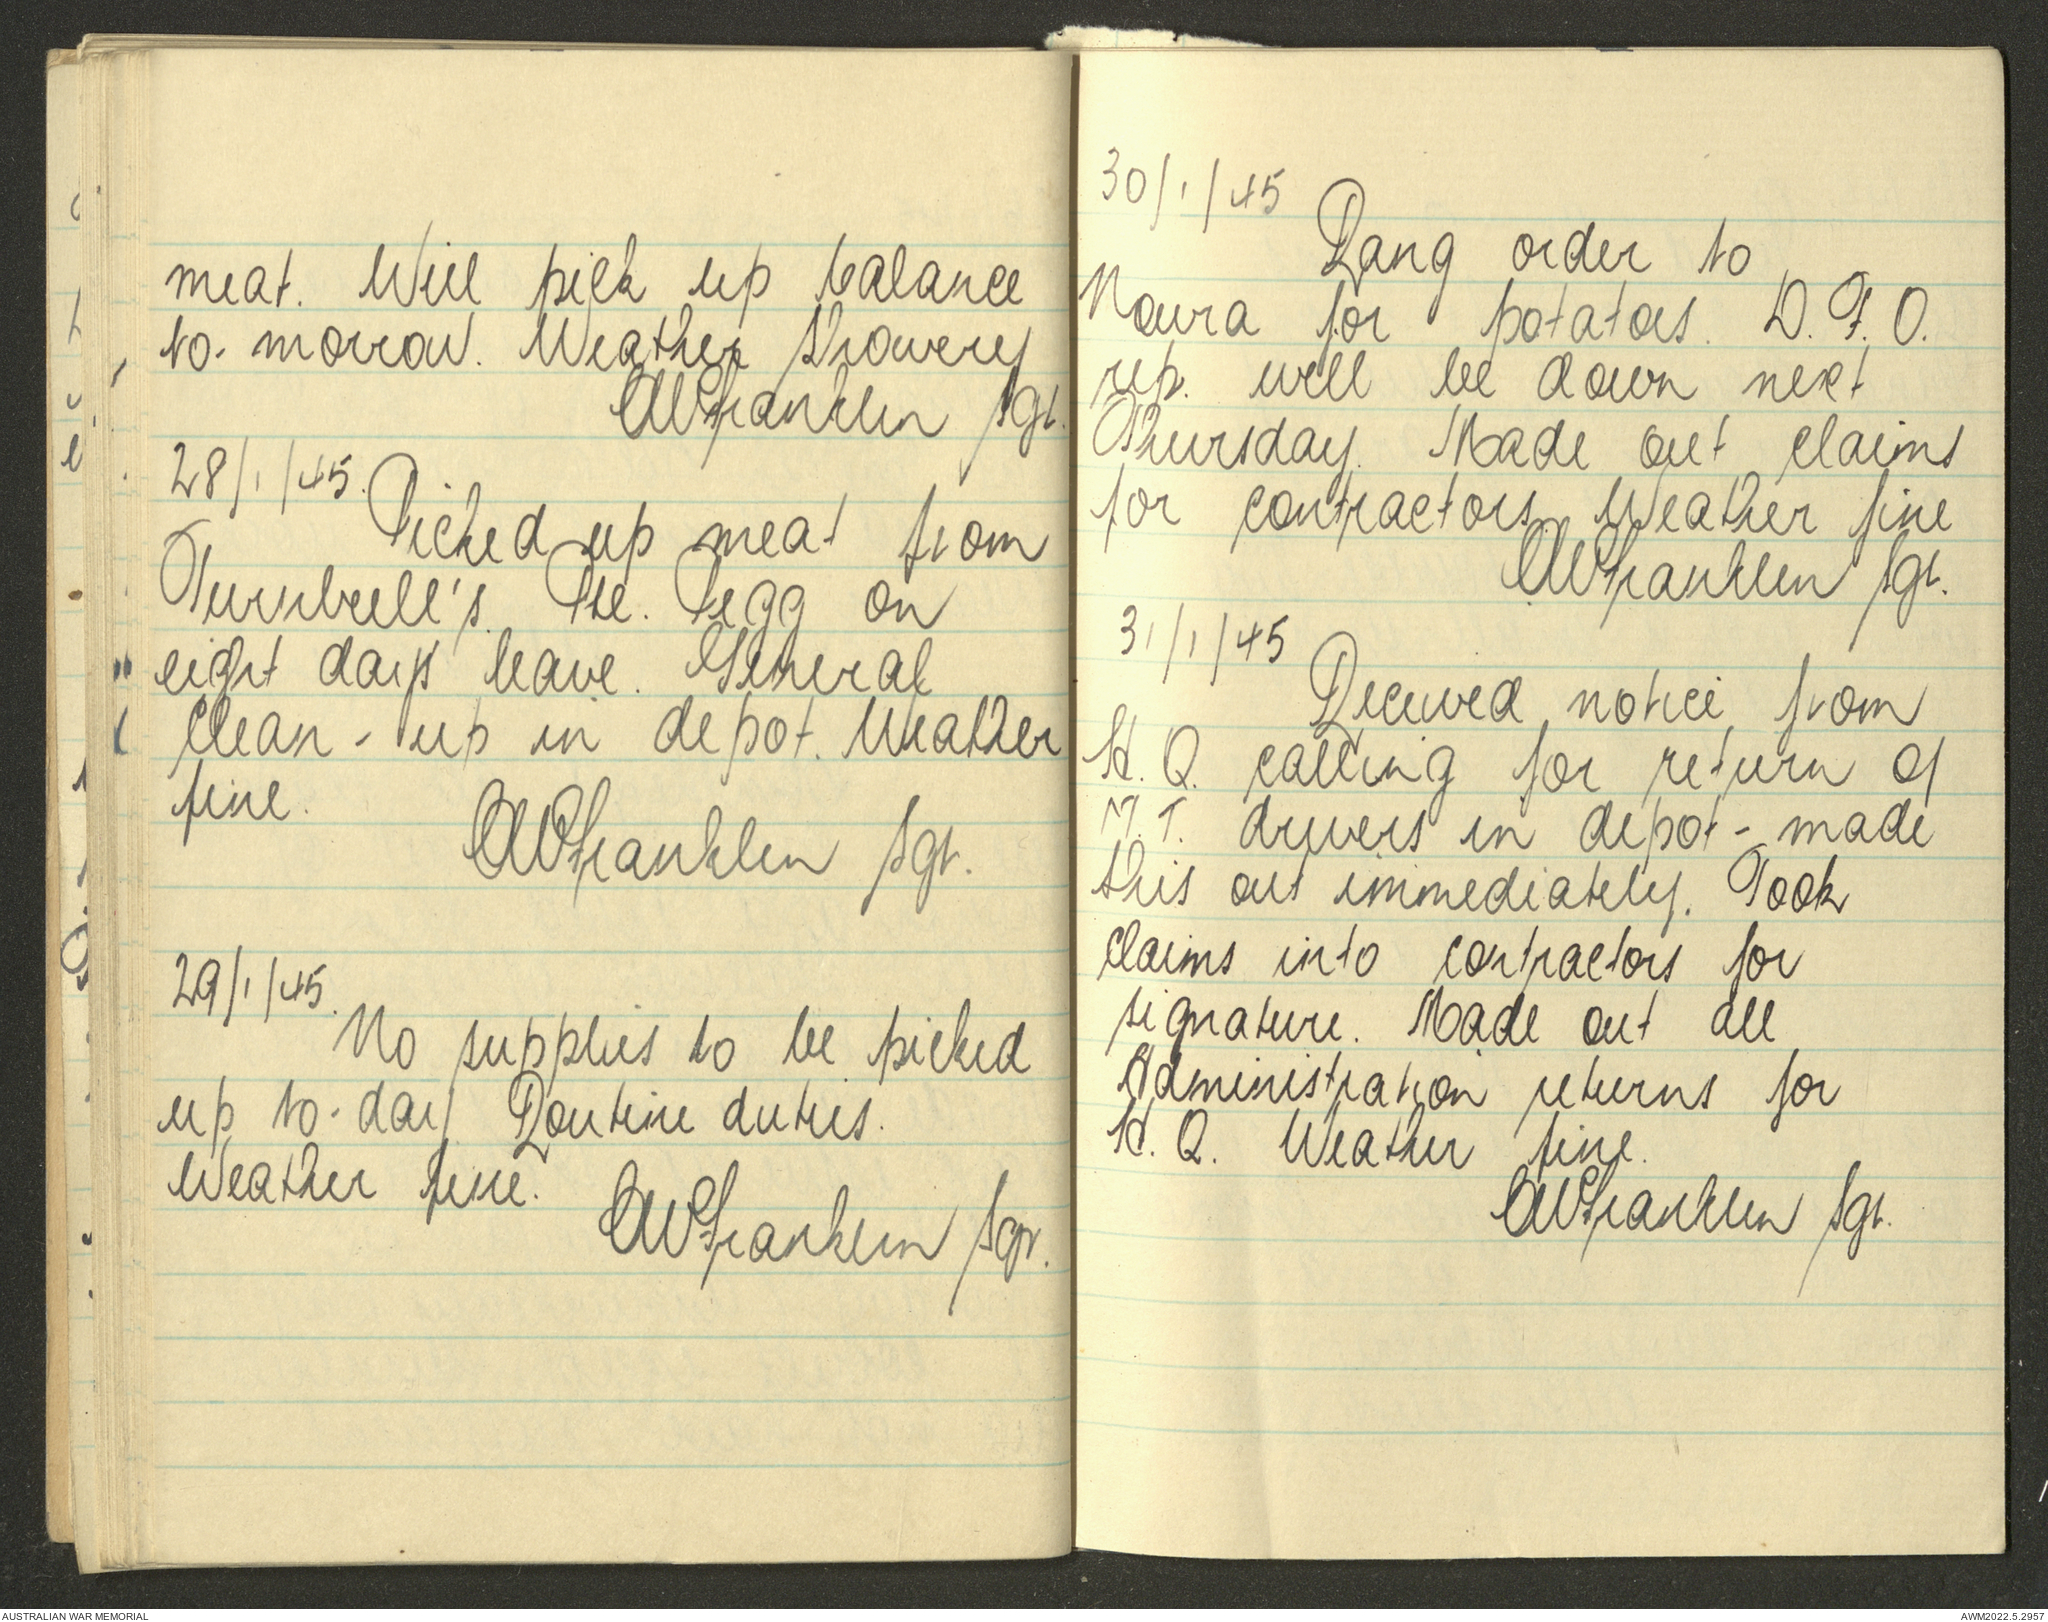 meat. Will pick up balance
to-morrow. Weather showery
AWFranklin Sgt.
28/1/45.
Picked up meat from
Turnbull's. Pte. Pegg on
eight days leave. General
clean-up in depot. Weather
fine.
AWFranklin Sgt.
29/1/45.
No supplies to be picked
up to-day. Routine duties.
Weather fine.
AWFranklin Sgt.
30/1/45
Rang order to
Nowra for potatoes. D.F.O.
rep. will be down next
Thursday. Made out claims
for contractors. Weather fine
AWFranklin Sgt.
31/1/45
Received notice from
H.Q. calling for return of
M.T. drivers in depot - made
this out immediately. Took
claims into contractors for
signature. Made out all
Administration returns for
H.Q. Weather fine.
AWFranklin Sgt.
AUSTRALIAN WAR MEMORIAL
AWM2022.5.2957